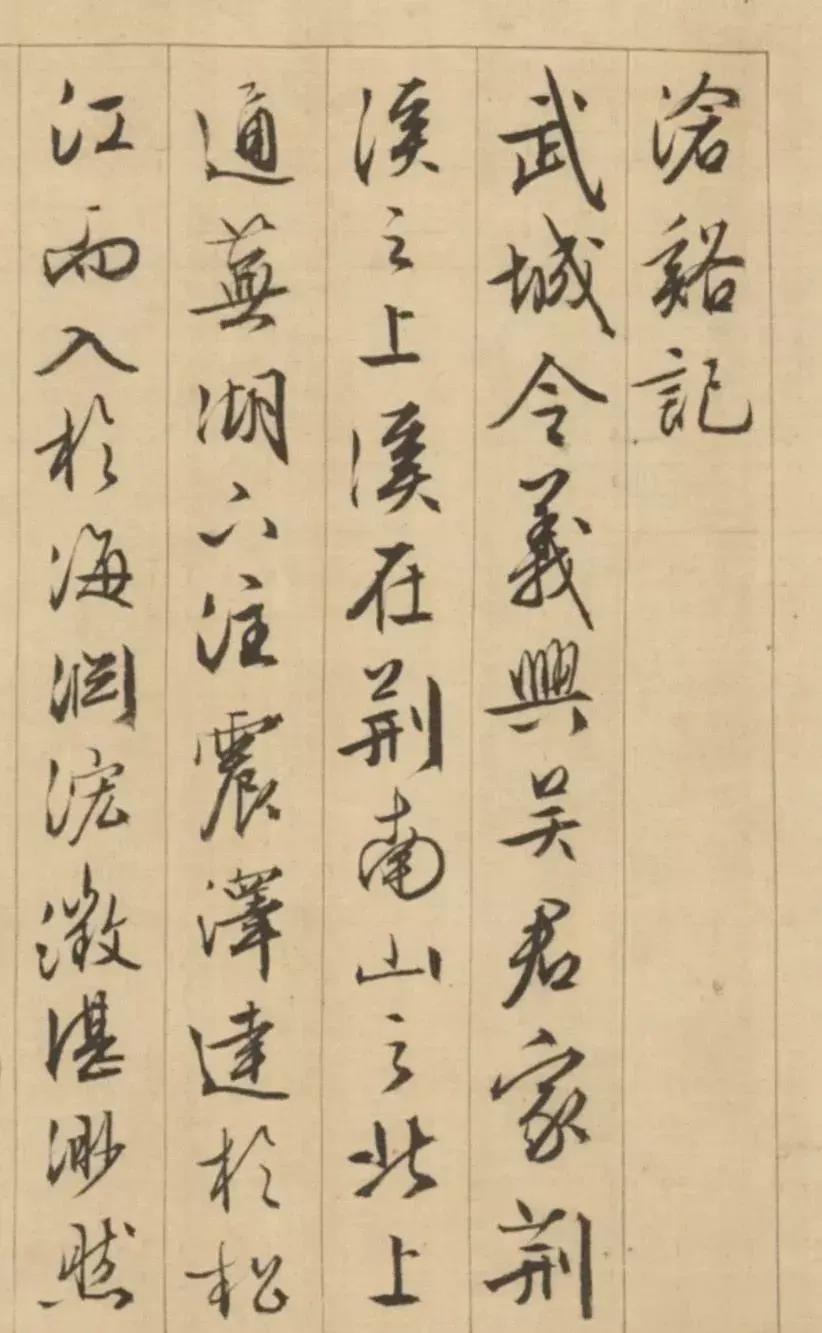 滄谿記
武城令義興吴君家荆
溪之上溪在荆南山之北上
通蕪湖下注震澤達於松
江而入於海渊浤澂湛渺然